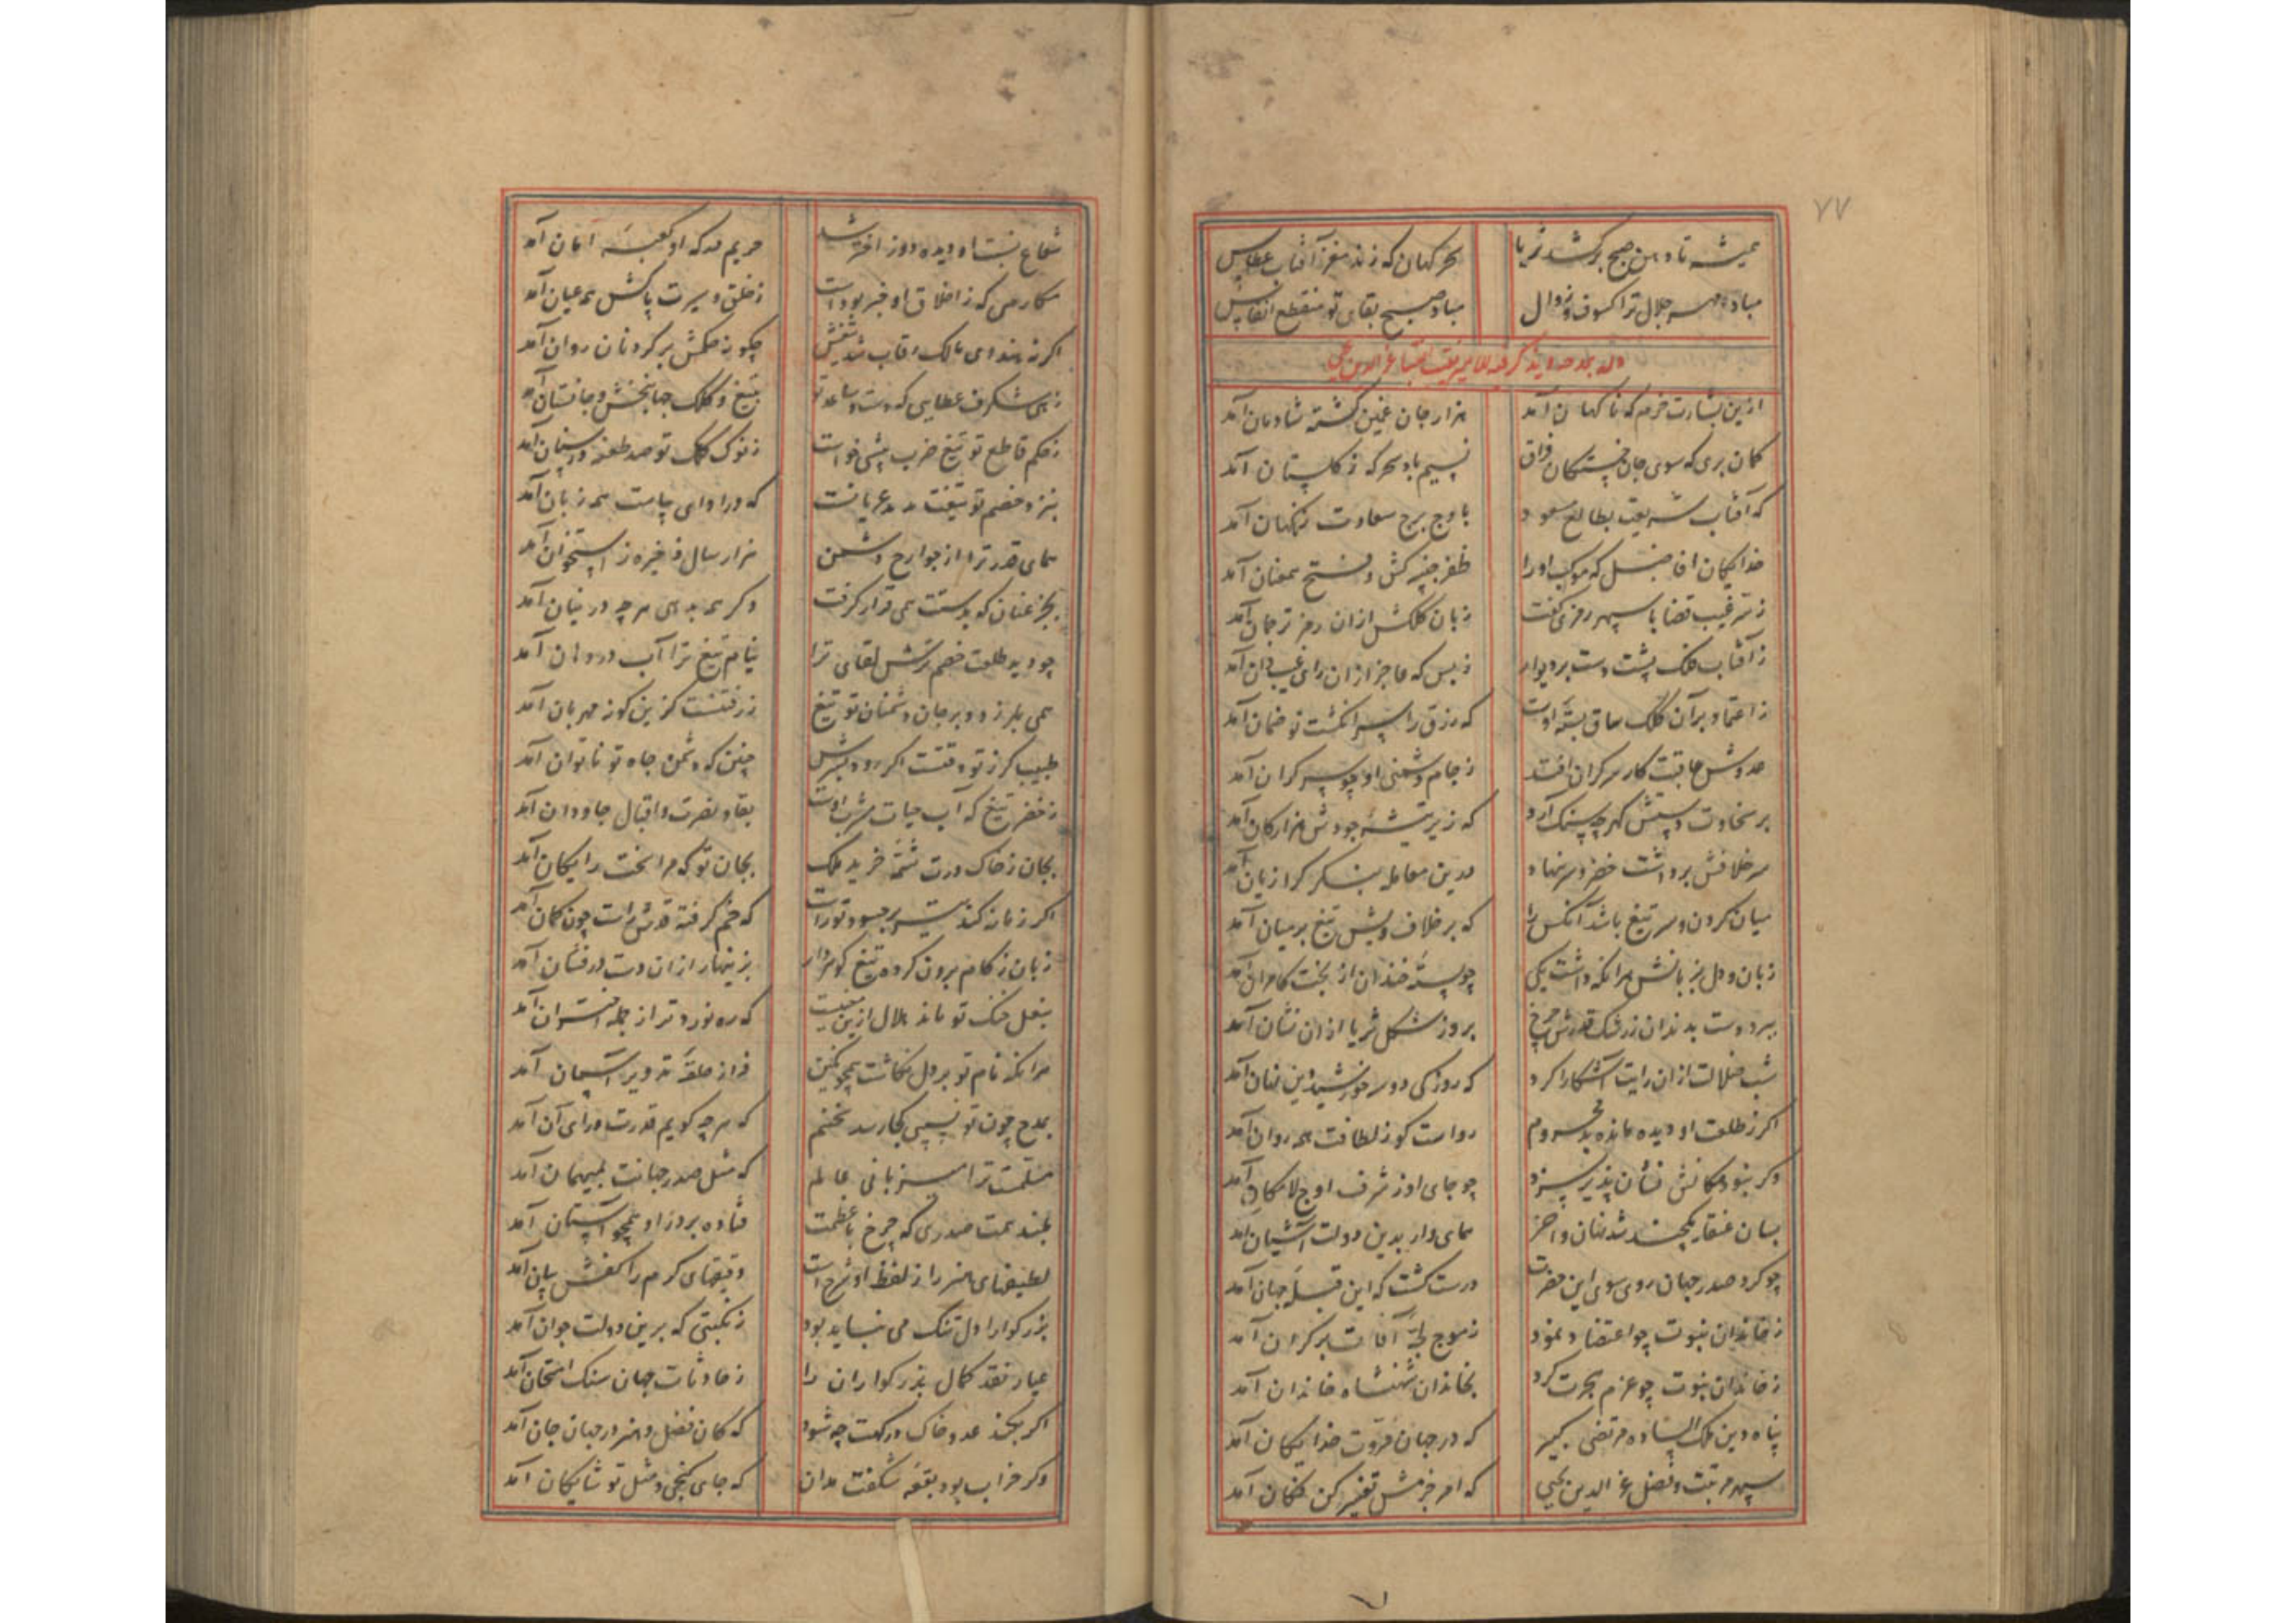 ۷۷
همیشه تا دهن صبح برکشد ثریا سحرکهان که زند مغز آفتاب عطاس
مباد مهر جلال ترا کسوف و زوال مباد صبح بقای تو منقطع انفاس
ازین بشارت خرم که ناکهان آمد هزار جان غمین کشته شادمان آمد
کمان بری که سوی جان خستکان فراق نسیم باد سحرکه ز کلستان آمد
که آفتاب شریعت بطالع مسعود باوج برج سعادت نکهان آمد
خدایکان افاضل که موکب او را ظفر جنیبه کش و فتح همعنان آمد
ز سر غیب قضا با سپهر رمزی کفت زبان کلکش ازان رمز ترجمان آمد
ز آفتاب فلک پشت دست بر دیوار ز بس که عاجز ازان رای غیب دان آمد
ز اعتماد بر آن کلک ساق بسته اوست که رزق را سر انکشت تو ضمان آمد
عدوش عاقبت کار سرکران افتد ز جام دشمنی او چو سرکران آمد
بر سخاوت دستش کهر چه سنک آرد که زیر تیشه جودش هزار کان آمد
سر خلافش برداشت خصم و سر بنهاد بدین معامله بنکر کرا زیان آمد
میان کردن و سر تیغ باشد آنکس را که بر خلاف ویش تیغ بر میان آمد
زبان و دل بزبانش هرانکه داشت یکی چو پسته خندان از بخت کامران آمد
ببرد دست بدندان ز رشک قدرش چرخ بروز شکل ثریا ازان نشان آمد
شب ضلالت ازان رایت آشکارا کرد که روزکی دو سه خورشید دین نهان آمد
اکر ز طلعت او دیده مانده بد محروم رواست کو ز لطافت همه روان آمد
وکر نبود مکانش نشان پذیر سزد چو جای او ز شرف اوج لامکان آمد
بسان عنقا یکچند شد نهان و آخر همای وار بدین دولت آشیان آمد
چو کرد صدر جهان روی سوی این حضرت درست کشت که این قبله جهان آمد
ز خاندان نبوت چو اعتضاد نمود ز موج لجه آفات بر کران آمد
ز خاندان نبوت چو عزم هجرت کرد بخاندان شهنشاه خاندان آمد
پناه دین ملک الساده مرتضی کبیر که در جهان مروت خدایکان آمد
سپهر مرتبت و فضل عز الدین یحیی که امر جزمش تفسیر کن فکان آمد
شعاع دیده دوز اختر شد حریم درکه او کعبه امان آمد
مکارمی که ز اخلاق او خبر بودست ز خلق و سیرت پاکش همه عیان آمد
اکر نه هندوی مالک رقاب شد تیغش چکونه حکمش بر کردنان روان آمد
زهی شکرف عطایی که دست و ساعد تو بتیغ و کلک جهانبخش و جانستان آمد
ز حکم قاطع تو تیغ ضرب پیشی خواست ز نوک کلک تو صد طعنه در سنان آمد
بنزد خصم تو تیغت عریانست که در ادای پیامت همه زبان آمد
همای قدر ترا از جوارح دشمن هزار سال ذخیره ز استخوان آمد
بجز عنان که بدستت همی قرار کرفت وکر همه بدهی هر چه در بنان آمد
چو دید طلعت خصم ترش لقای ترا نیام تیغ ترا آب در دهان آمد
همی بلرزد و بر جان دشمنان تو تیغ ز رفتنست کزین کونه مهربان آمد
طبیب کرز تو وقتست اکر رود بسرش چنین که دشمن جاه تو ناتوان آمد
ز خضر تیغ که آب حیات مشرب اوست بقا و نصرت و اقبال جاودان آمد
بجان ز خاک درت شمه خرید ملک بجان تو که مرا سخت رایکان آمد
اکر زمانه کند تیر بر حسود تو راست که خم کرفته قدش راست چون کمان آمد
زبان ز کام برون کرده تیغ کوهردار بزینهار ازان دست درفشان آمد
بنعل خنک تو ماند هلال ازین معنیست که ره نورد تر از جمله اختران آمد
هرانکه نام تو بر دل نکاشت همچو نکین فراز حلقه تدویر آسمان آمد
بمدح چون تو کسی کجا رسد سخنم که هر چه کویم قدرت ورای آن آمد
مسلمست ترا میزبانی عالم که مثل صدر جهانت بمیهمان آمد
بلند همت صدری که چرخ با عظمت فتاده بر در او همچو آستان آمد
لطیفهای هنر را ز لفظ او شرح است دقیقهای کرم را کفش بیان آمد
بزرکوارا دل تنک می نباید بود ز نکبتی که برین دولت جوان آمد
عیار نقد کمال بزرکواران را ز حادثات جهان سنک امتحان آمد
اکر بکند عدو خاک درکهت چه شود که کان فضل و هنر در جهان جان آمد
وکر خراب بود بقعه شکفت مدان که جای کنجی و مثل تو شایکان آمد